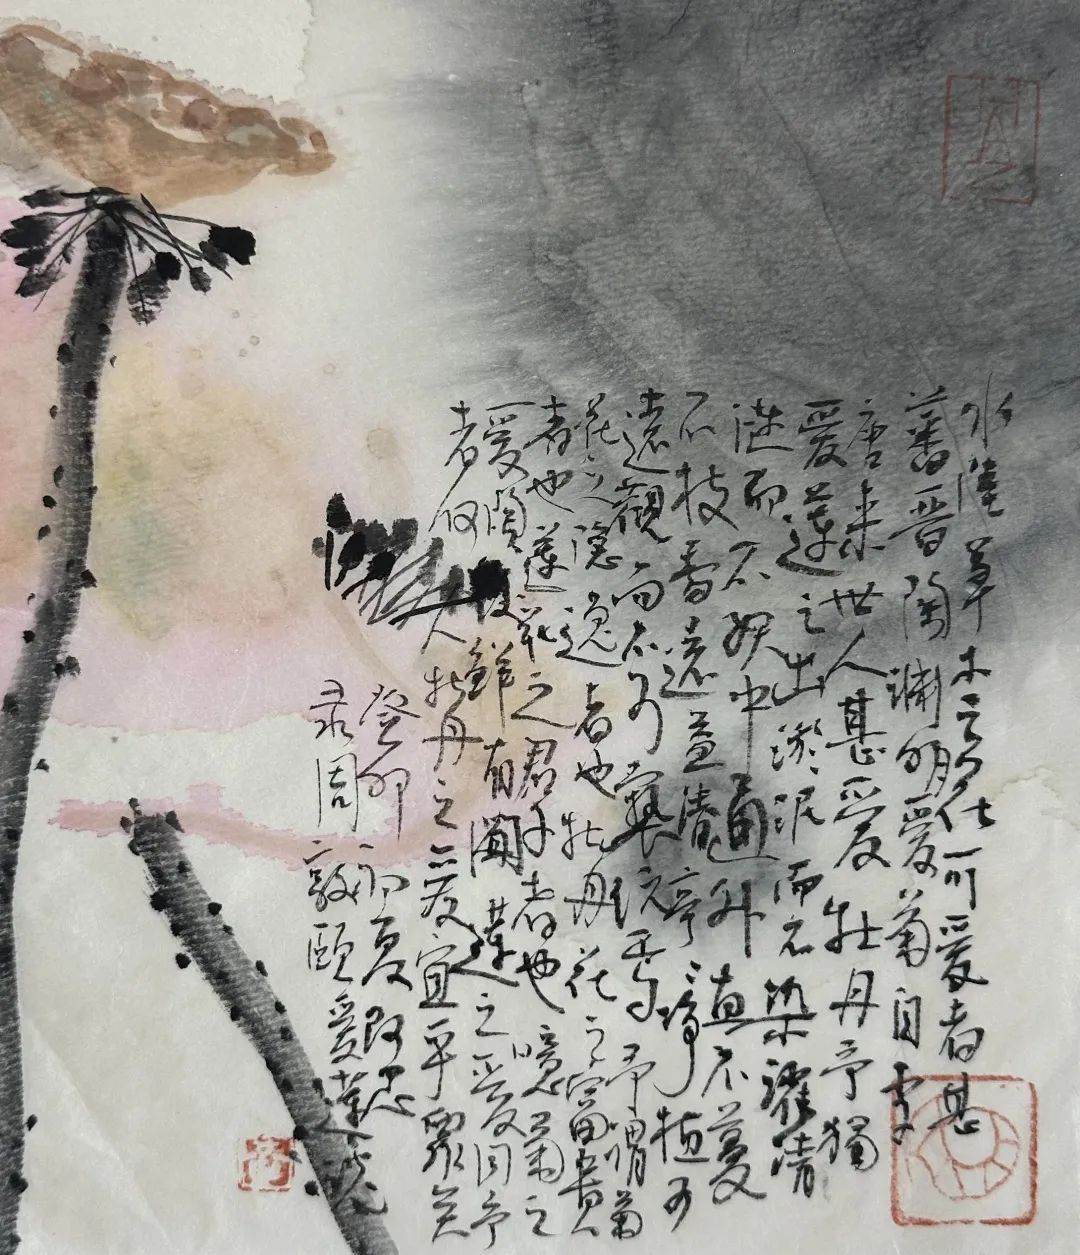 水陸草木之花可愛者甚
蕃晋陶渊明愛菊自李
唐来世人甚愛牡丹予獨
愛蓮之出淤泥而不染濯清
漣而不妖中通外直不蔓
不枝香遠益清亭亭淨植可
遠觀而不可褻玩焉予謂菊
花之隱逸者也牡丹花之富貴
者也蓮花之君子者也噫菊之
愛陶後鮮有聞蓮之愛同予
者何人牡丹之愛宜乎眾矣
癸卯初夏
录周敦頤愛蓮说